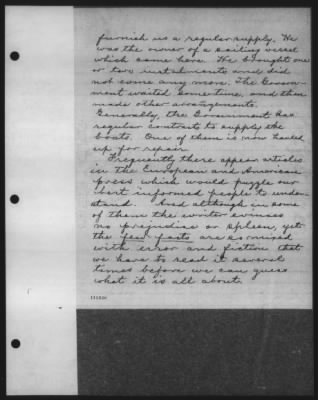 furnish us a regular supply. He
was the owner of a sailing vessel
which came here. He brought one
or two installments and did
not come any more. The Govern-
ment waited some time, and then
made other arrangements.
Generally, the Government has
regular contracts to supply the
boats. One of them is now hauled
up for repair.
Frequently there appear articles
in the European and American
press which would puzzle our
best informed people to under-
stand. And although in some
of them the writer evinces
no prejudice or spleen, yet
the few facts are so mixed
with error and fiction that
we have to read it several
times before we can guess
what it is all about.